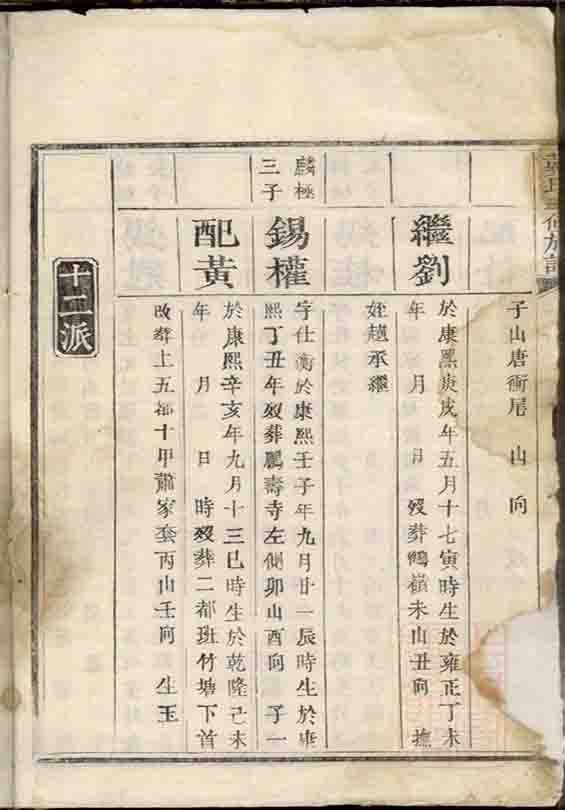 氏三修族譜
子山唐衝尾 山 向
繼劉
於康熙庚戌年五月十七寅時生於雍正丁未
年 月 日 歿葬鴨嶺未山丑向 撫
姪越承繼
麟極
三子
錫權
字仕衡於康熙壬子年九月廿一辰時生於康
熙丁丑年歿葬鵬壽寺左側卯山酉向 子一
配黃
於康熙辛亥年九月十三巳時生於乾隆己未
年 月 日 時歿葬二都班竹塘下首
改葬上五都十甲蕭家套丙山壬向 生玉
十二派